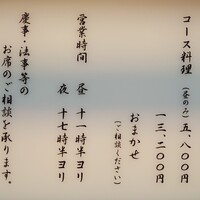 コース料理
(昼のみ)五、八〇〇円
一三、二〇〇円
おまかせ
(ご相談ください)
営業時間
昼 十一時半ヨリ
夜 十七時半ヨリ
慶事・法事等の
お席のご相談を承ります。